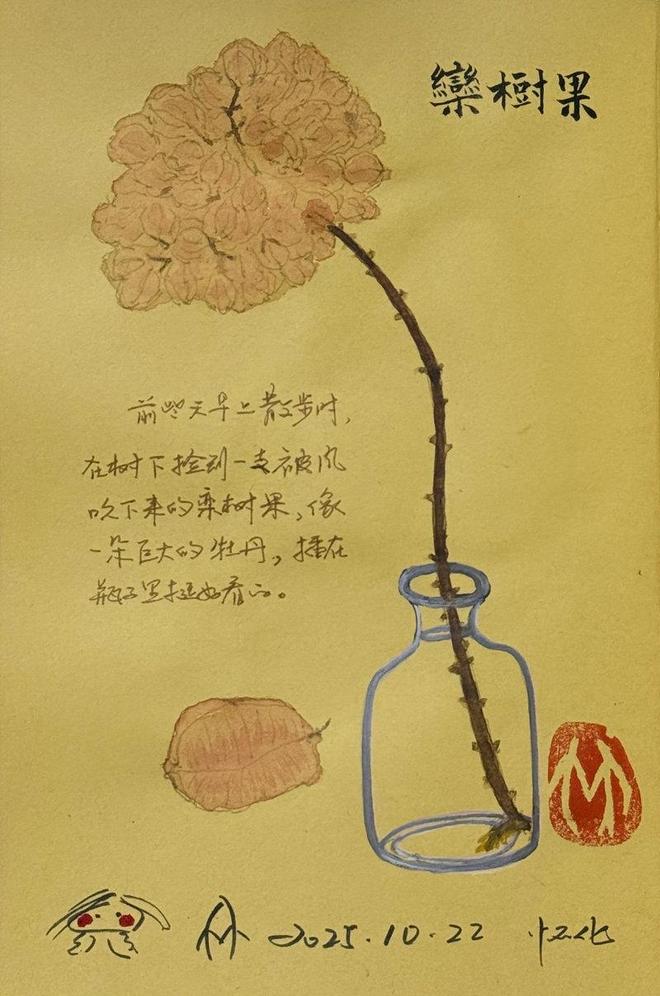 欒樹果
前些天早上散步时，
在树下捡到一支被风
吹下来的栾树果，像
一朵巨大的牡丹，插在
瓶子里挺好看的。
林 2025.10.22 怀化